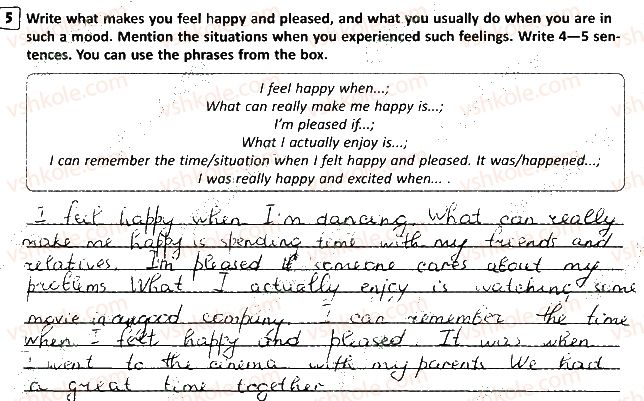 5 Write what makes you feel happy and pleased, and what you usually do when you are in
such a mood. Mention the situations when you experienced such feelings. Write 4—5 sen-
tences. You can use the phrases from the box.
I feel happy when...;
What can really make me happy is...;
I'm pleased if...;
What I actually enjoy is...;
I can remember the time/situation when I felt happy and pleased. It was/happened...;
I was really happy and excited when... .
I feel happy when I'm dancing. What can really
make me happy is spending time with my friends and
relatives. I'm pleased if someone cares about my
problems What I actually enjoy is watching some
movie in a good company. I can remember the time
when I felt happy and pleased. It was when
I went to the cinema with my parents We had
a great time together
vshkole.com